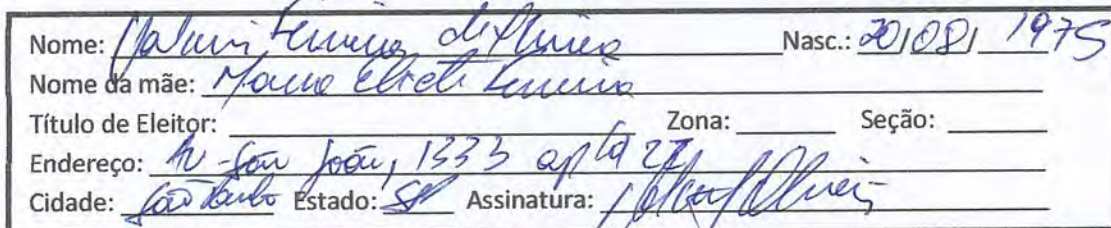 Nome: Ferreira de Oliveira Nasc.: 20/08/ 1975
Nome da mãe: Maria Elieti Ferreira
Título de Eleitor: Zona: Seção:
Endereço: Av-São João, 1333 apto 27
Cidade: São Paulo Estado: SP Assinatura: